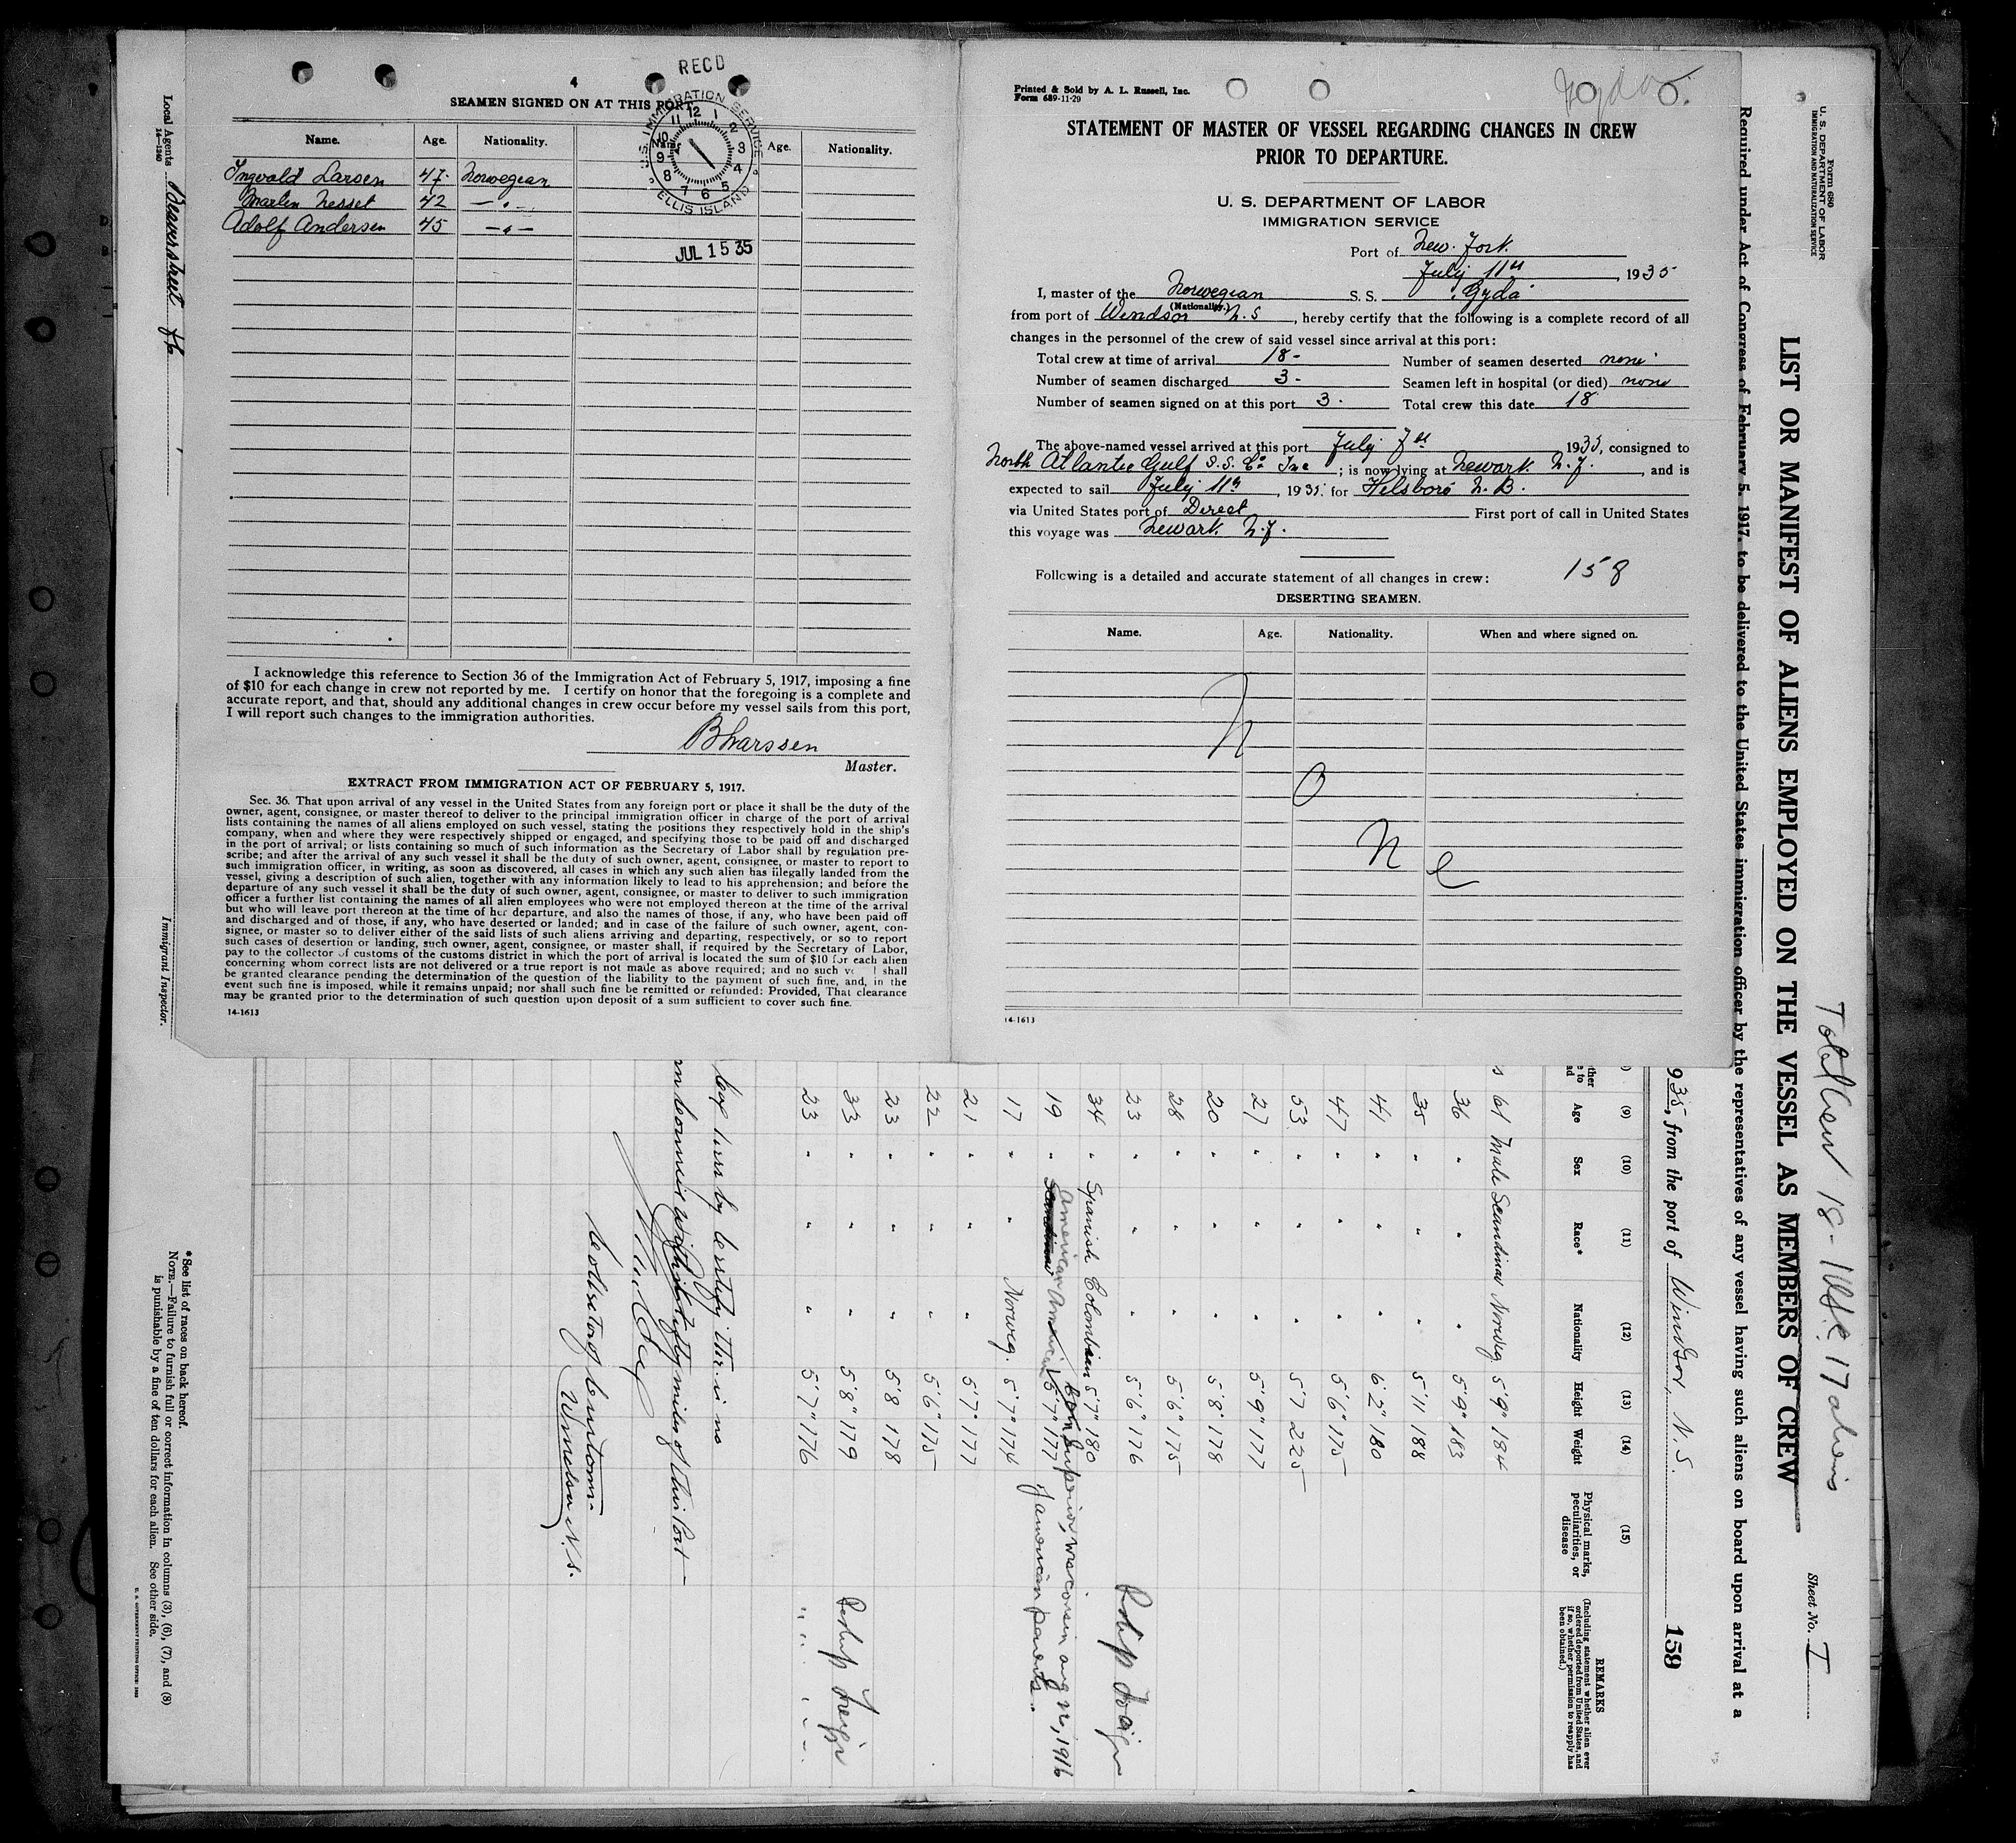 4
RECD
SEAMEN SIGNED ON AT THIS PORT.
U.S. IMMIGRATION SERVICE
ELLIS ISLAND
JUL 15 35
Name. Age. Nationality. Name. Age. Nationality.
Ingvald Larsen 47 Norwegian
Marlin Nesset 42 — " —
Adolf Andersen 45 — " —
I acknowledge this reference to Section 36 of the Immigration Act of February 5, 1917, imposing a fine
of $10 for each change in crew not reported by me. I certify on honor that the foregoing is a complete and
accurate report, and that, should any additional changes in crew occur before my vessel sails from this port,
I will report such changes to the immigration authorities.
B Larssen
Master.
EXTRACT FROM IMMIGRATION ACT OF FEBRUARY 5, 1917.
Sec. 36. That upon arrival of any vessel in the United States from any foreign port or place it shall be the duty of the
owner, agent, consignee, or master thereof to deliver to the principal immigration officer in charge of the port of arrival
lists containing the names of all aliens employed on such vessel, stating the positions they respectively hold in the ship's
company, when and where they were respectively shipped or engaged, and specifying those to be paid off and discharged
in the port of arrival; or lists containing so much of such information as the Secretary of Labor shall by regulation pre-
scribe; and after the arrival of any such vessel it shall be the duty of such owner, agent, consignee, or master to report to
such immigration officer, in writing, as soon as discovered, all cases in which any such alien has illegally landed from the
vessel, giving a description of such alien, together with any information likely to lead to his apprehension; and before the
departure of any such vessel it shall be the duty of such owner, agent, consignee, or master to deliver to such immigration
officer a further list containing the names of all alien employees who were not employed thereon at the time of the arrival
but who will leave port thereon at the time of her departure, and also the names of those, if any, who have been paid off
and discharged and of those, if any, who have deserted or landed; and in case of the failure of such owner, agent, con-
signee, or master so to deliver either of the said lists of such aliens arriving and departing, respectively, or so to report
such cases of desertion or landing, such owner, agent, consignee, or master shall, if required by the Secretary of Labor,
pay to the collector of customs of the customs district in which the port of arrival is located the sum of $10 for each alien
concerning whom correct lists are not delivered or a true report is not made as above required; and no such ve l shall
be granted clearance pending the determination of the question of the liability to the payment of such fine, and, in the
event such fine is imposed, while it remains unpaid; nor shall such fine be remitted or refunded: Provided, That clearance
may be granted prior to the determination of such question upon deposit of a sum sufficient to cover such fine.
14-1613
Printed & Sold by A. L. Russell, Inc.
Form 689-11-29
Gyda
STATEMENT OF MASTER OF VESSEL REGARDING CHANGES IN CREW
PRIOR TO DEPARTURE.
U. S. DEPARTMENT OF LABOR
IMMIGRATION SERVICE
Port of New York
July 11th, 1935
I, master of the Norwegian S. S. "Gyda"
(Nationality.)
from port of Windsor N.S, hereby certify that the following is a complete record of all
changes in the personnel of the crew of said vessel since arrival at this port:
Total crew at time of arrival 18- Number of seamen deserted none
Number of seamen discharged 3- Seamen left in hospital (or died) none
Number of seamen signed on at this port 3. Total crew this date 18
The above-named vessel arrived at this port July 7th 1935, consigned to
North Atlantic Gulf S.S. Co Inc; is now lying at Newark N.J., and is
expected to sail July 11th, 1935 for Hilsboro N.B.
via United States port of Direct First port of call in United States
this voyage was Newark N.J.
Following is a detailed and accurate statement of all changes in crew: 158
DESERTING SEAMEN.
Name. Age. Nationality. When and where signed on.
N o n e
14-1613
Form 680
U. S. DEPARTMENT OF LABOR
IMMIGRATION AND NATURALIZATION SERVICE
Total Crew 18 - 17 aliens
Sheet No. I
LIST OR MANIFEST OF ALIENS EMPLOYED ON THE VESSEL AS MEMBERS OF CREW
Required under Act of Congress of February 5, 1917, to be delivered to the United States immigration officer by the representatives of any vessel having such aliens on board upon arrival at a
935, from the port of Windsor, N.S. 159
(9) (10) (11) (12) (13) (14) (15)
Age Sex Race* Nationality Height Weight Physical marks, peculiarities, or disease
REMARKS
(Including statement whether alien ever ordered deported from United States, and if so, whether permission to reapply has been obtained.)
61 Male Scandinav Norweg 5'9" 184
36 " " " 5'9" 183
35 " " " 5'11 188
41 " " " 6'2" 180
47 " " " 5'6" 175
53 " " " 5'7 225
27 " " " 5'9" 177
20 " " " 5'8" 178
28 " " " 5'6" 175
23 " " " 5'6" 176
34 " Spanish Colombian 5'7" 180
19 " American American 5'7" 177
born Superior, Wisconsin aug 22, 1916
17 " " Norweg. 5'7" 174
21 " " " 5'7" 177
22 " " " 5'6" 175
23 " " " 5'8 178
33 " " " 5'8" 179
23 " " " 5'7" 176
by certify there is no
fifty miles of this Port —
Collector of Customs
Windsor N.S.
*See list of races on back hereof.
NOTE.—Failure to furnish full or correct information in columns (3), (6), (7), and (8)
is punishable by a fine of ten dollars for each alien. See other side.
U. S. GOVERNMENT PRINTING OFFICE
Local Agents Beaverstreet
14—1240
Immigrant Inspector.